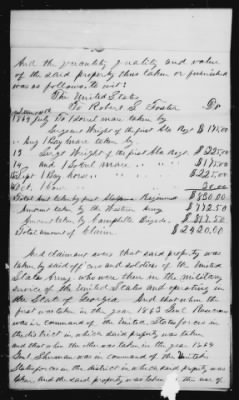 And the quantity quality and value
of the said property thus taken or furnished
was as follows to wit:
The United States
To Robert S. Foster Dr
1864 July To 1 sorrel mare taken by
Sergant Wright of the first Ala Regt $175.00
" Aug 1 Bay mare taken by
13 Sergt Wright of the first Ala Regt. $225.00
14 and 1 Sorrel mare " " " $175.00
Sept 1 Bay horse " " " $225.00
Oct. 1 Cow " " 30.00
Total amt taken by first Alabama Regiment $830.00
Amount taken by the Western Army
Amount taken by Campbells Brigade
Total amount of Claim
And claimant avers that said property was
taken by said officers and soldiers of the United
States Army, who were then in the military
service of the United States and operating in
the State of Georgia. And that when the
first was taken in the year 1863 Genl
was in command of the United States forces in
the district in which said property was taken
and that when the other was taken in the year 1864
Genl Sherman was in command of the United
States forces in the district in which said property was
taken, and the said property was taken for the use of